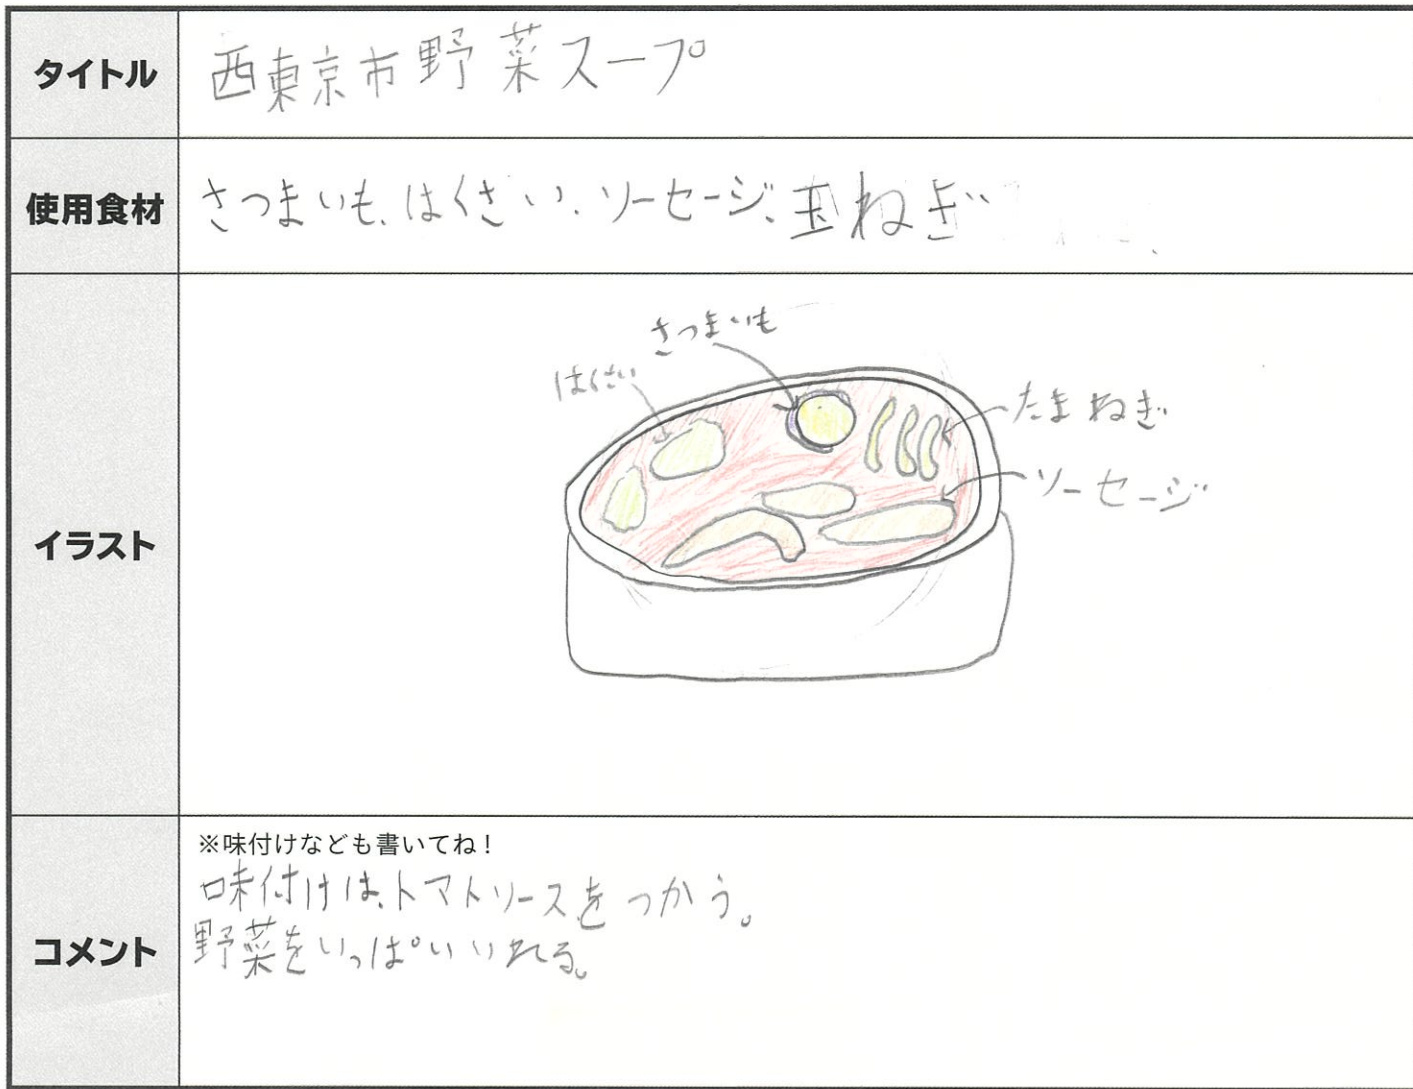 タイトル
西東京市野菜スープ
使用食材
さつまいも、はくさい、ソーセージ、玉ねぎ
イラスト
さつまいも
はくさい
たまねぎ
ソーセージ
コメント
※味付けなども書いてね!
味付けは、トマトソースをつかう。
野菜をいっぱいいれる。